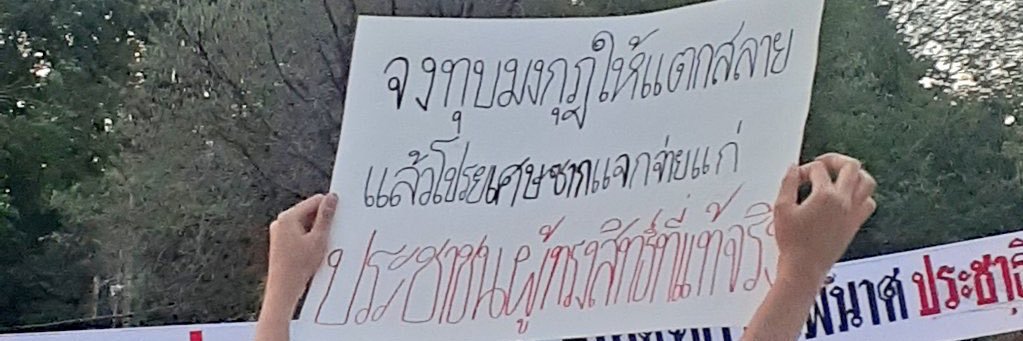 จงทุบมงกุฎให้แตกสลาย
แล้วโปรยเศษซากแจกจ่ายแก่
ประชาชนผู้ทรงสิทธิ์ที่แท้จริง